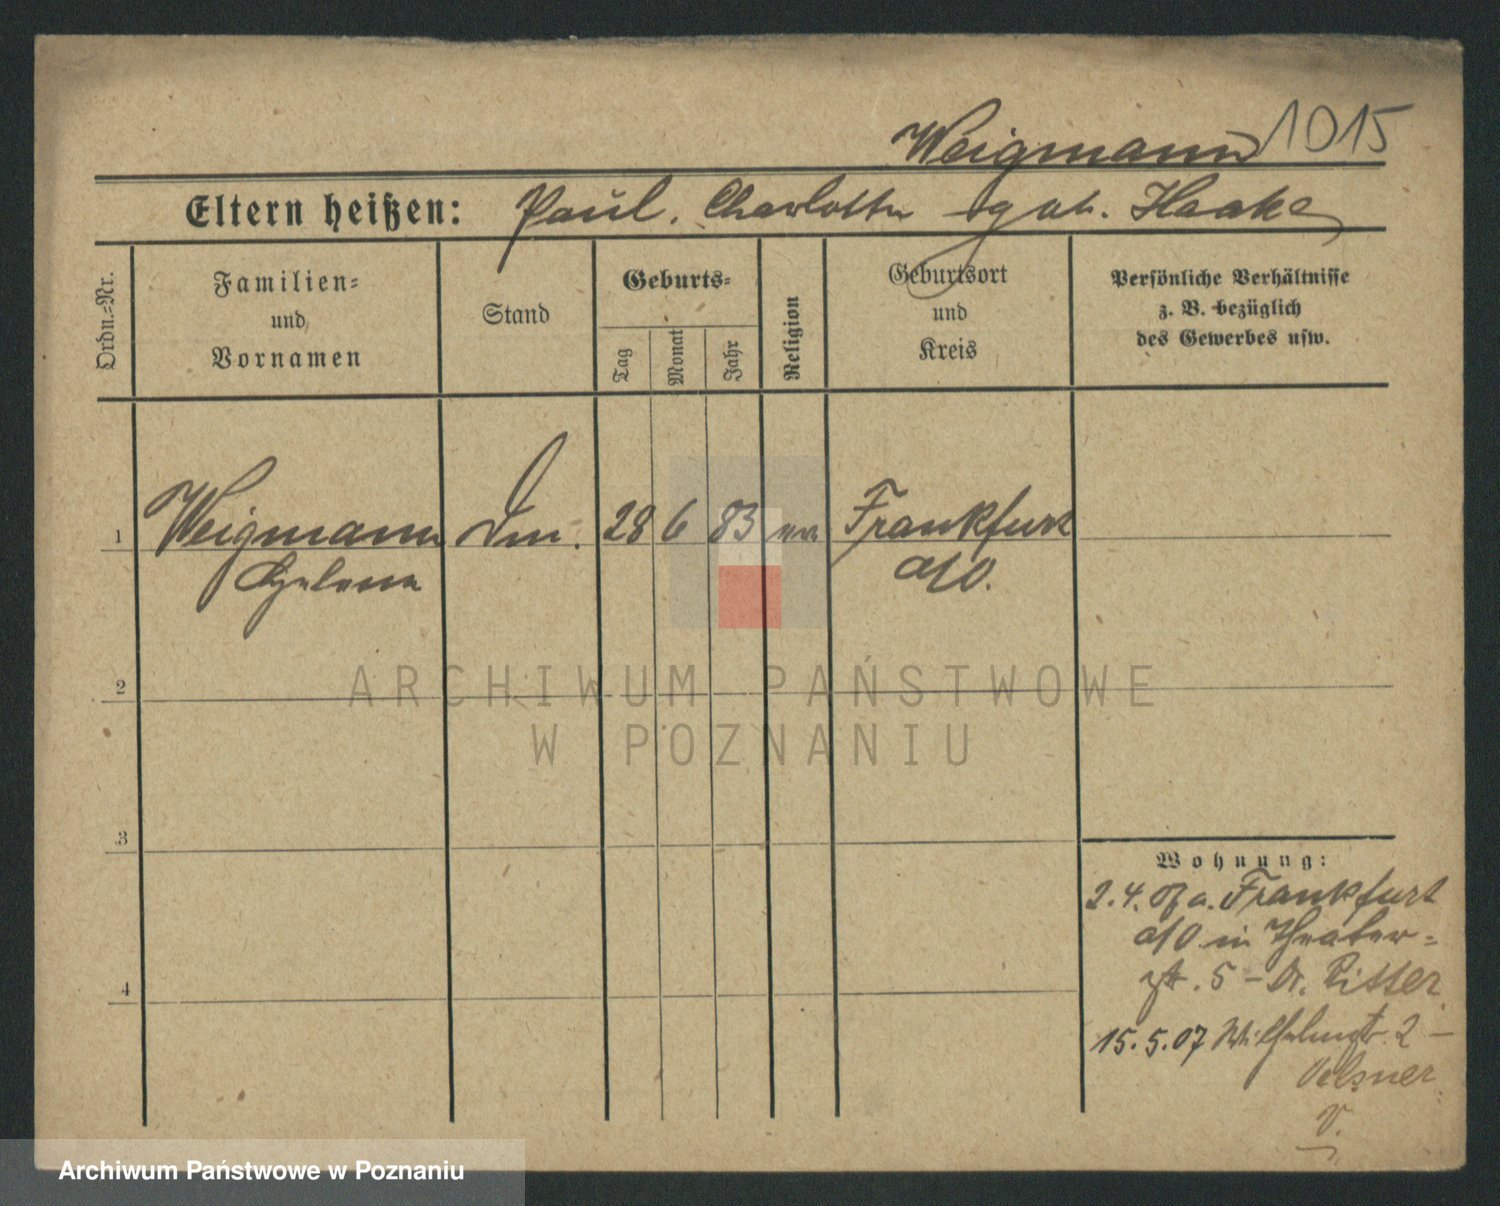 Weigmann 1015
Eltern heißen: Paul. Charlotte geb. Haake
Ordn.-Nr.
Familien-
und
Vornamen
Stand
Geburts-
Tag
Monat
Jahr
Religion
Geburtsort
und
Kreis
Persönliche Verhältnisse
z. B. bezüglich
des Gewerbes usw.
1 Weigmann 28 6 83 ev Frankfurt
Helene a/O.
2
ARCHIWUM PAŃSTWOWE
W POZNANIU
3
Wohnung:
2.4.07 a. Frankfurt
a/O in Theater-
str. 5 – Dr. Ritter
4
15.5.07 Wilhelmstr. 2 –
Oelsner
V.
Archiwum Państwowe w Poznaniu